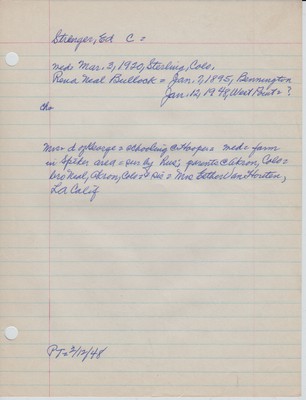 Strenger, Ed C =
med= Mar. 3, 1920, Sterling, Colo,
Rena Neal Bullock = Jan. 7, 1895, Bennington
Jan. 12, 1948, West Point = ?
ch=
Mrs= d of George = schooling @ Hooper = med = farm
in Spiker area = sur by hus, parents @ Akron, Colo =
bro Neal, Akron, Colo = sis = Mrs Esther Van Horsten,
LA Calif
PT= 3/12/48